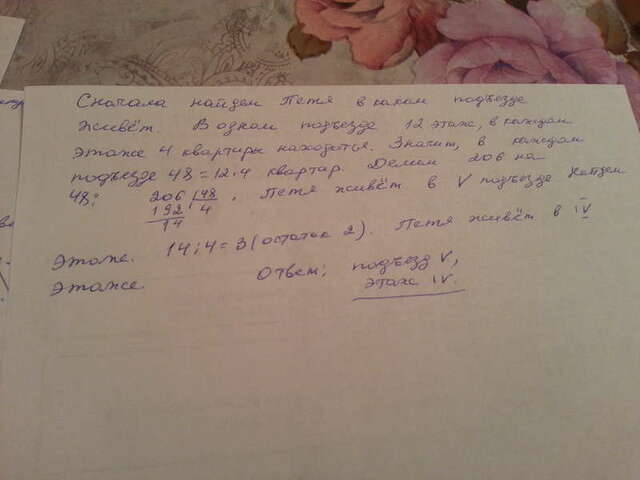 Сначала найдем Петя в каком подъезде
живёт. В одном подъезде 12 этаж, в каждом
этаже 4 квартиры находится. Значит, в каждом
подъезде 48 = 12·4 квартир. Делим 206 на
48: 206 48 , Петя живёт в V подъезде Найдем
192 4
14
этаже. 14:4=3 (остаток 2). Петя живёт в IV
этаже. Ответ: подъезд V,
этаж IV.